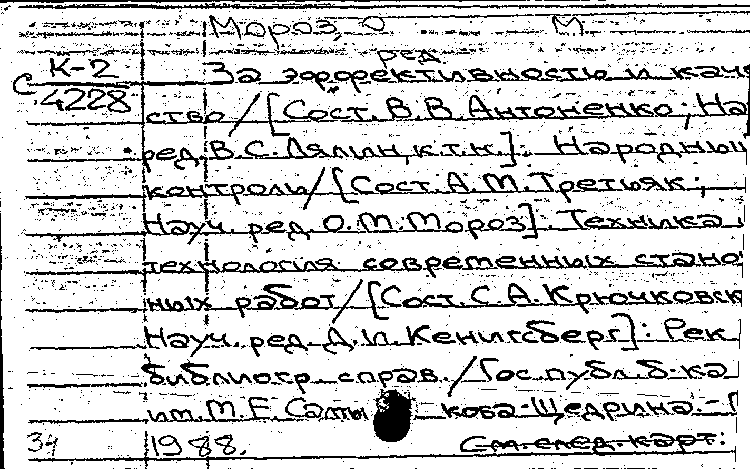 Мороз, О М
ред.
К-2 За эффективность и каче
С 4228 ство / [Сост. В. В. Антоненко; На
ред. В. С. Лялин, к.т.н.]. Народный
контроль / [Сост. А. М. Третьяк;
Науч. ред. О. М. Мороз]. Техника
технология современных стано
ных работ / [Сост. С. А. Крючковск
Науч. ред. Д. И. Кенигсберг]: Рек
библиогр. справ. / Гос. публ. б-ка
им. М. Е. Салтыкова-Щедрина. -
34 1988. См. след. карт.